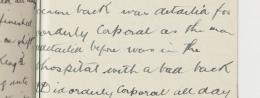 back was detailed for
orderly Corporal as the man
detailed before was in the
hospital with a bad back
Did orderly Corporal all day